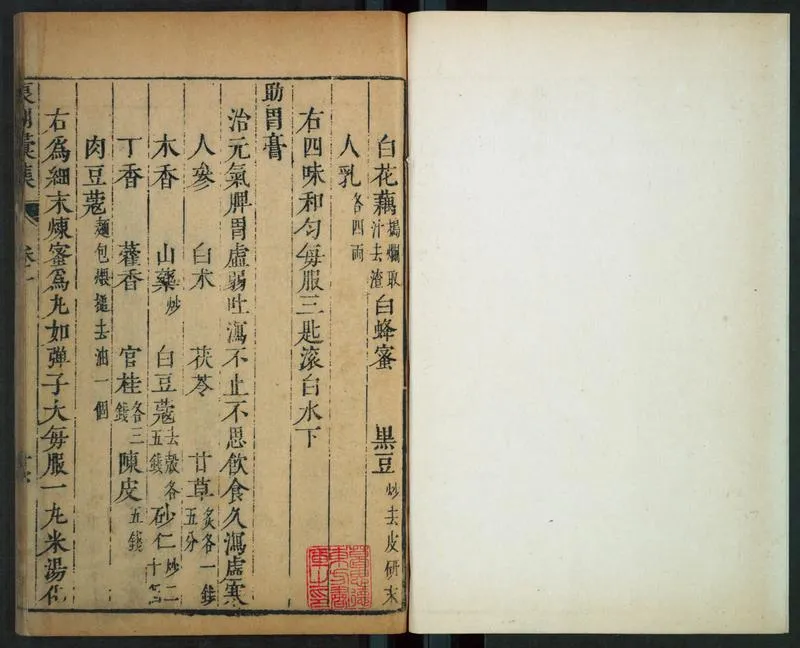 白花藕搗爛取汁去渣 白蜂蜜 黑豆炒去皮研末
人乳各四兩
右四味和勻每服三匙滾白水下
助胃膏
治元氣脾胃虛弱吐瀉不止不思飲食久瀉虛寒
人參 白术 茯苓 甘草炙各一錢五分
木香 山藥炒 白豆蔻去殼各五錢 砂仁炒二十
丁香 藿香 官桂各三錢 陳皮五錢
肉豆蔻麵包煨搥去油一個
右爲細末煉蜜爲丸如彈子大每服一丸米湯化
囊集 卷一